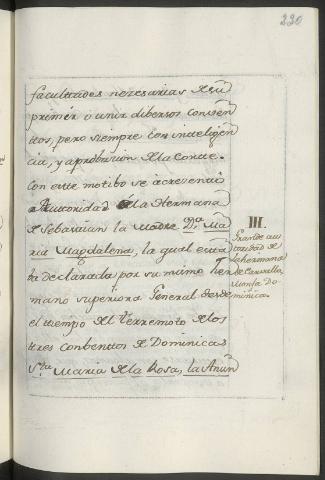 220
facultades nezesarias de su
primir o unir dibersos conven
tos, pero siempre con inteligen
cia, y aprobazion de la Corte.
Con este motibo se acrecentó
la Autoridad de la Hermana
de Sebastian la Madre Da. Ma
ria Magdalena, la qual esta
ba declarada por su mismo Her
mano superiora General desde
el tiempo del terremoto de los
tres conbentos de Dominicas
Sta. Maria de la Rosa, la Anun
III
Grande au
toridad de
la hermana
de Carvallo,
monja Do
minica.